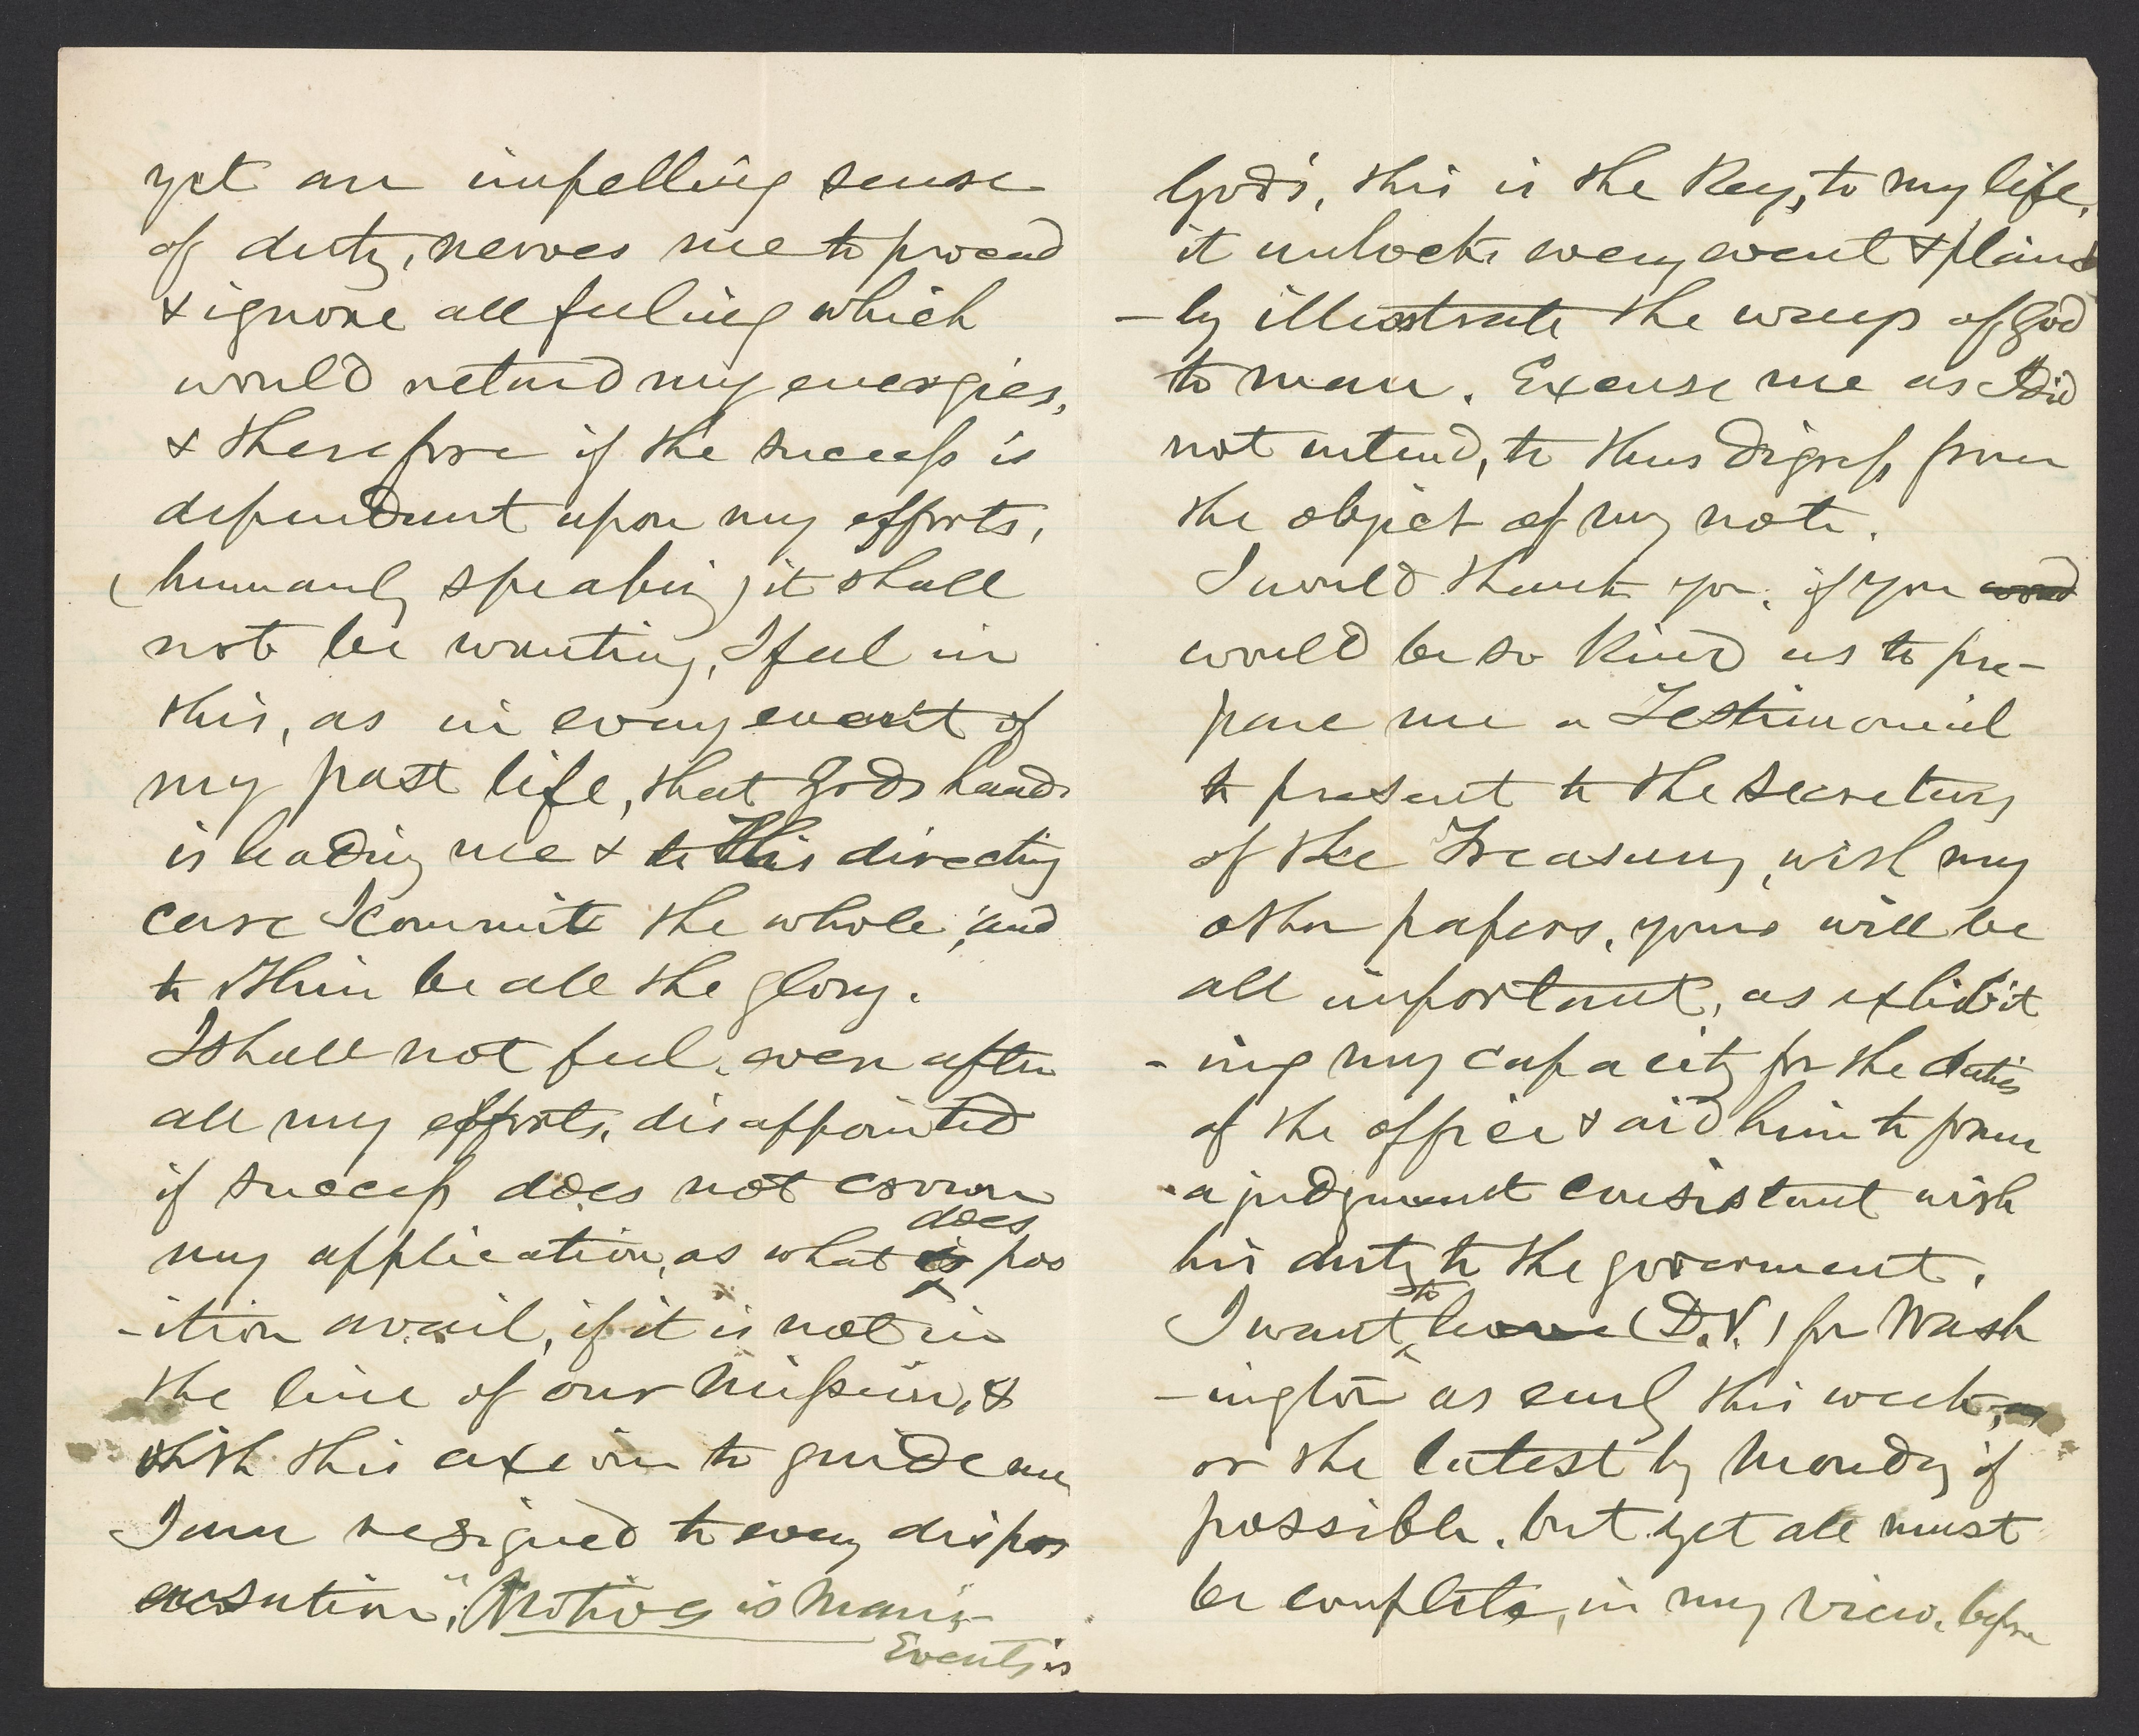 yet an impelling sense
of duty, nerves me to proceed
& ignore all feeling which
would retard my energies,
& therefore if the success is
dependant upon my efforts,
(humanly speaking) it shall
not be wanting, I feel in
this, as in every event of
my past life, that Gods hand
is leading me & to His directing
care I commit the whole, and
to Him be all the glory.
I shall not feel, even after
all my efforts, disappointed
if success does not crown
does
my application, as what is pos
-ition avail, if it is not in
the line of our Mission, &
with this axiom to guide me
I am resigned to every dispos
"Motives is Man's
Events is
God's, this is the Key, to my life,
it unlocks every event & plain
-ly illustrate the ways of God
to man. Excuse me as I did
not intend, to thus digress from
the object of my note.
I would thank you, if you
would be so kind as to pre-
pare me a Testimonial
to present to the Secretary
of the Treasury, with my
other papers, yours will be
all important, as exhibit
-ing my capacity for the duties
of the office & aid him to form
a judgment consistant with
his duty to the goverment.
to
I want leave (D.V.) for Wash
-ington as early this week,
or the latest by Monday if
possible. but yet all must
be complete, in my view, before